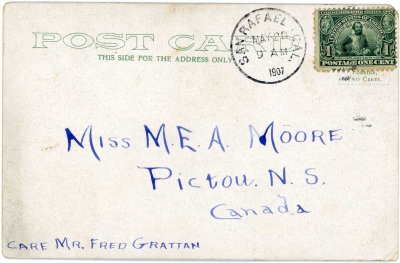 POST CARD
THIS SIDE FOR THE ADDRESS ONLY
SAN RAFAEL CAL.
MAY 28
9 AM
1907
1 1
POSTAGE ONE CENT
Two Cents.
Miss M.E.A. Moore
Pictou. N.S.
Canada
CARE MR. FRED GRATTAN